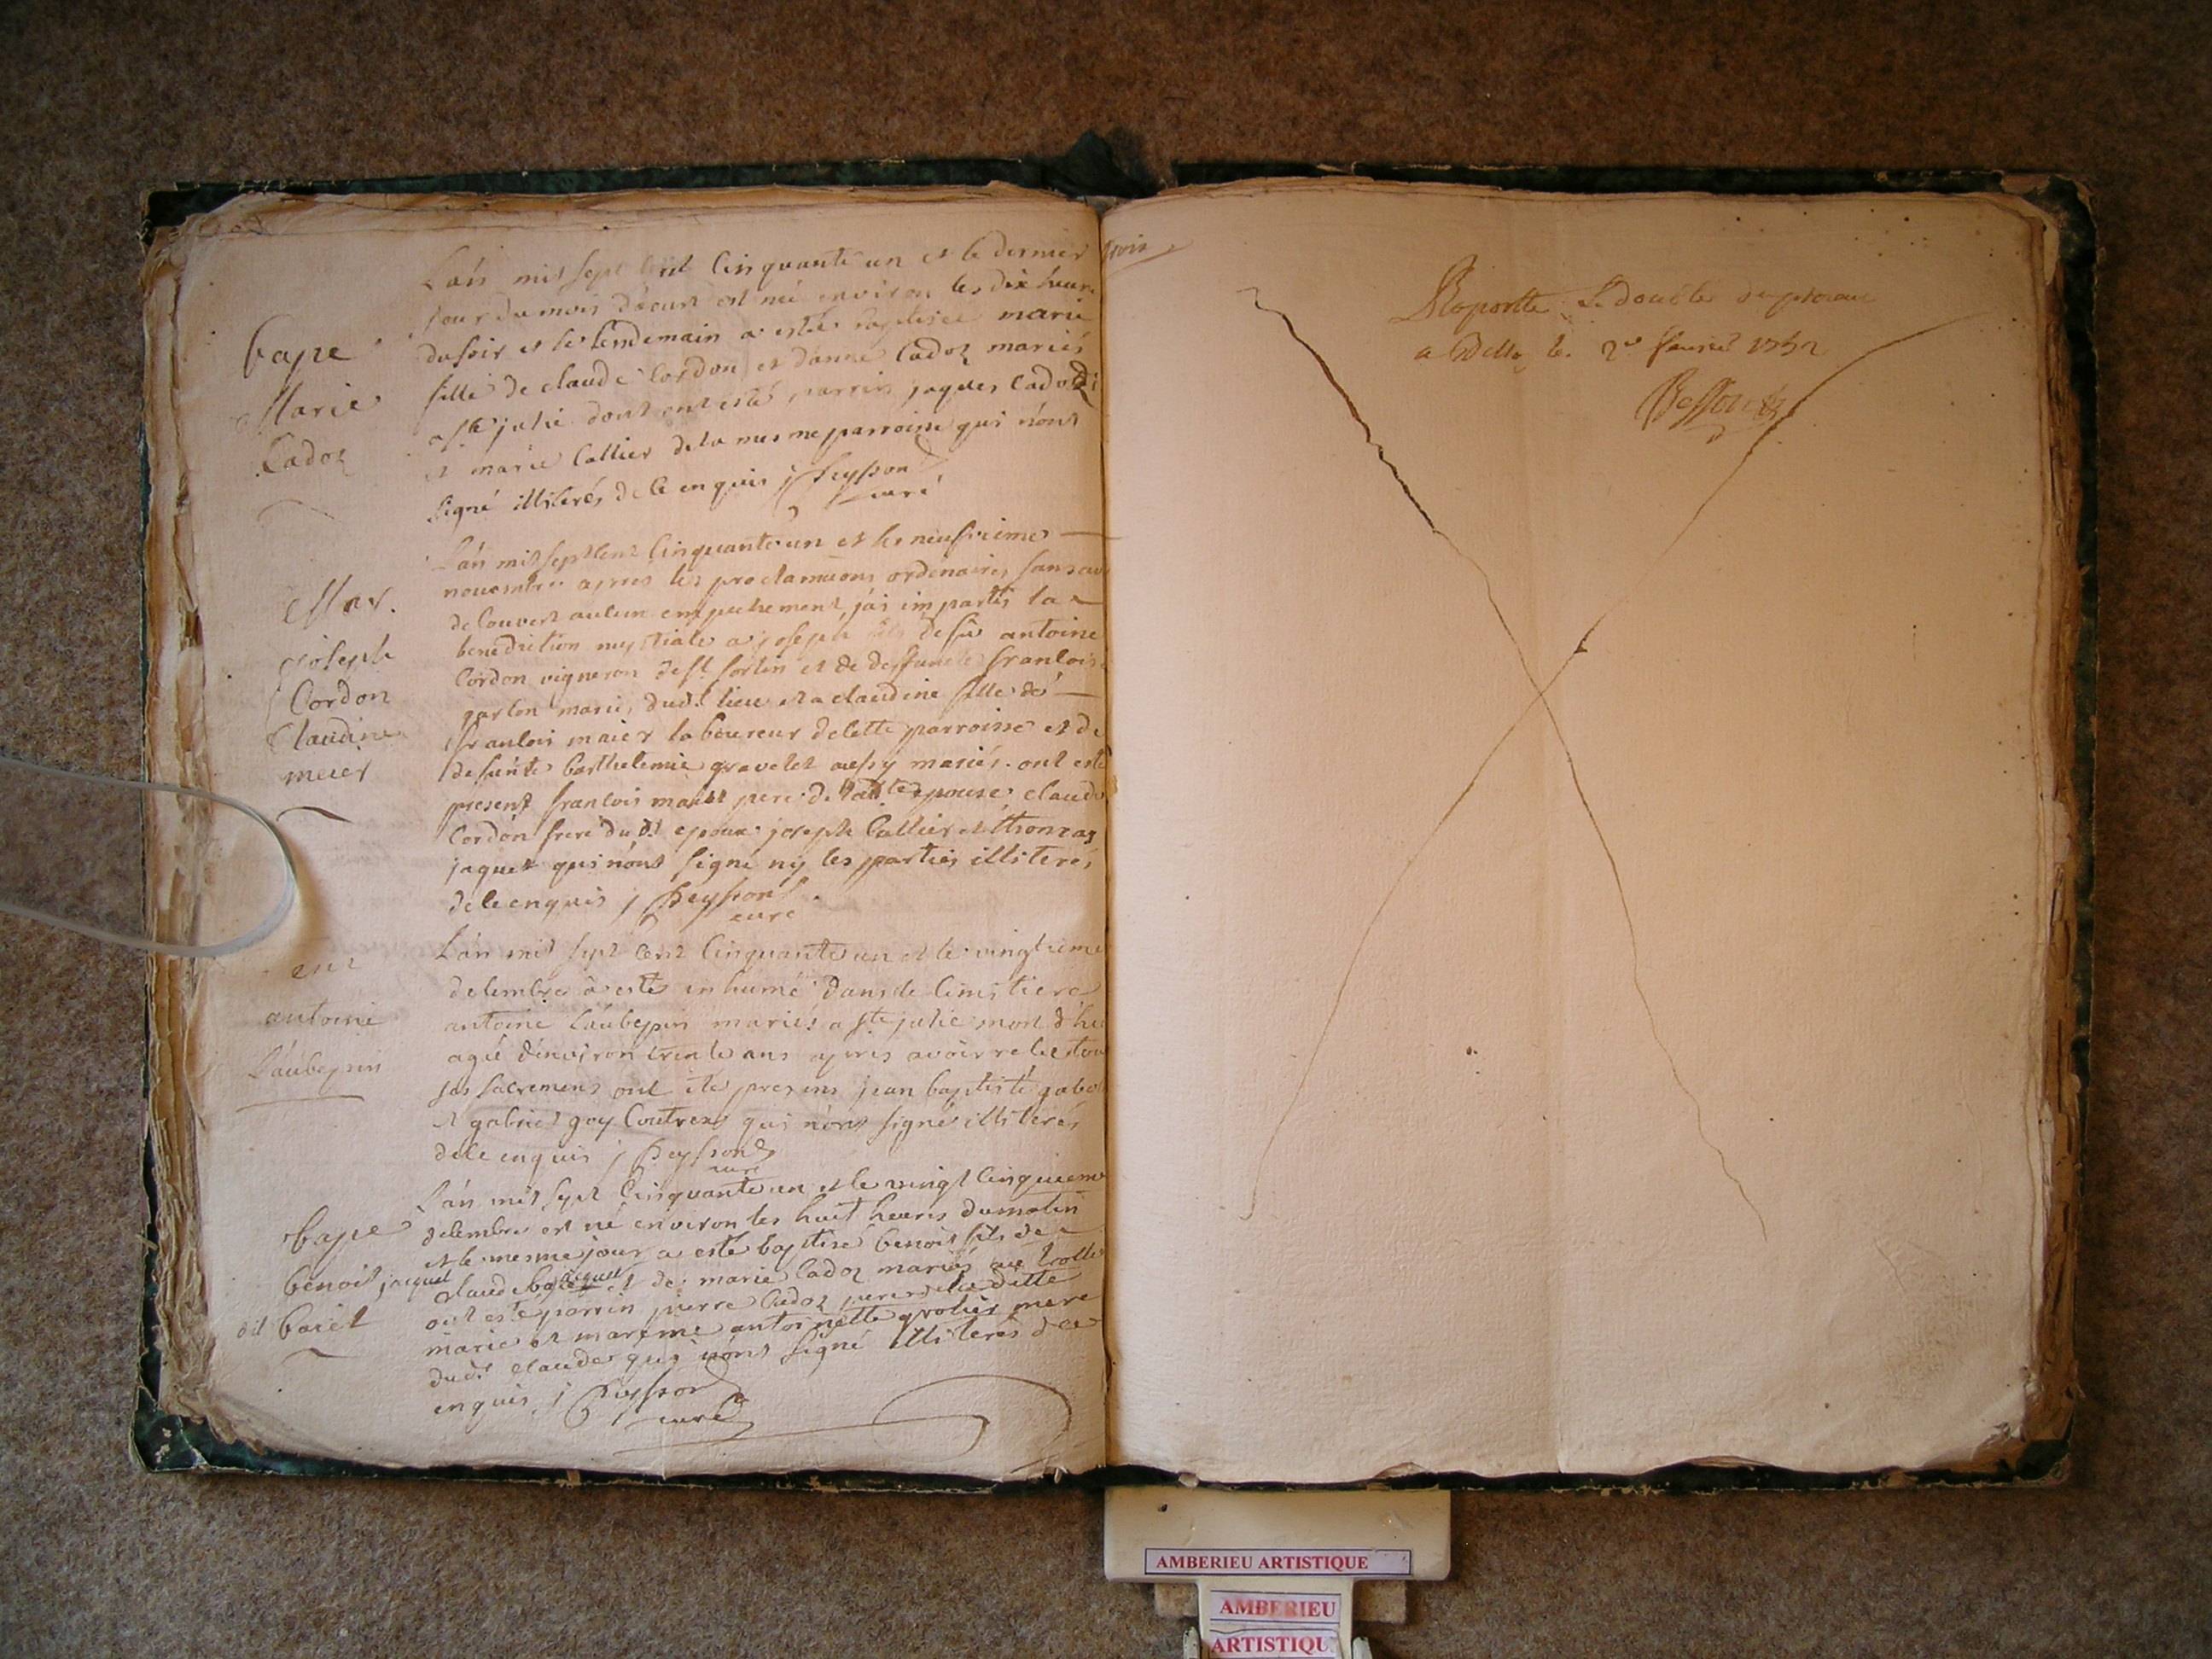 L'an mil sept cent cinquante un et le dernier
jour du mois d'aout est né environ les dix heures
du soir et le lendemain a esté baptisée marie
fille de claude Cordon et d'anne Cadoz mariés
a ste julie dont ont esté parrin jaques Cadoz
et marie Callier de la mesme parroisse qui n'ont
signé illiterés de ce enquis j Peysson
curé
bapt
Marie
Cadoz
L'an mil sept cent cinquante un et le neufvieme
novembre apres les proclamaons ordinaires sans avoir
decouvert aucun empechement j'ai imparti la
benediction nuptiale a joseph fils de fû antoine
Cordon vigneron de st sorlin et de deffuncte francoise
mariés dudt lieu et a claudine fille de
francois maier laboureur de cette parroisse et de
defunte barthelemie gravelet aussy mariés. ont esté
present francois maier pere de ladte epouse claude
Cordon frere dudt epoux joseph Callier et thomas
jaquet qui n'ont signé ny les parties illiterés
de ce enquis j Peysson
curé
Mar.
joseph
Cordon
Claudine
meier
L'an mil sept cent cinquante un et le vingtieme
decembre a esté inhumé dans le cimetiere
antoine Laubepin mariés a ste julie mort d'hier
agé d'environ trente ans apres avoir recu tous
ses sacremens ont ete presens jean baptiste
et gabriel goy qui n'ont signé illiterés
de ce enquis j Peysson
curé
ent
antoine
Laubepin
L'an mil sept cinquante un et le vingt cinquieme
decembre est né environ les huit heures du matin
et le mesme jour a esté baptisé benoit fils de
claude jaquet et de marie Cadoz mariés au trollier
ont esté parrin pierre Cadoz pere de la ditte
marie et mareine antoinette grolier mere
dudt claude qui n'ont signé illiterés de ce
enquis j Peysson
curé
bapt
benoit jacquet
dit baiet
trois
Raporté le double du presant
a Belley le 2e fevrier 1752
AMBERIEU ARTISTIQUE
AMBERIEU
ARTISTIQU